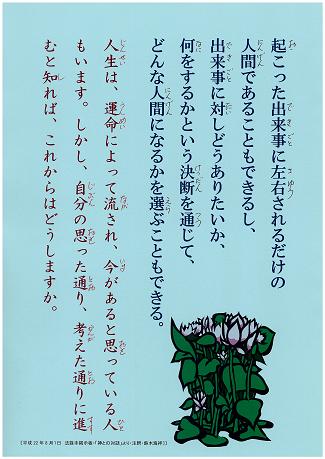 起こった出来事に左右されるだけの
人間であることもできるし、
出来事に対しどうありたいか、
何をするかという決断を通じて、
どんな人間になるかを選ぶこともできる。
人生は、運命によって流され、今があると思っている人
もいます。しかし、自分の思った通り、考えた通りに進
むと知れば、これからはどうしますか。